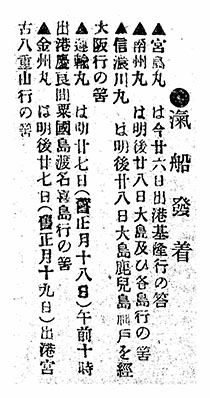 ●氣船發着
▲宮島丸 は今廿六日出港基隆行の筈
▲南州丸 は明後廿八日大島及び各島行の筈
▲信濃川丸 は明後廿八日大島鹿兒島神戸を經
大阪行の筈
▲運輸丸 は明廿七日(舊正月十八日)午前十時
出港慶良間粟國島渡名喜島行の筈
▲金州丸 は明後廿七日(舊正月十九日)出港宮
古八重山行の筈